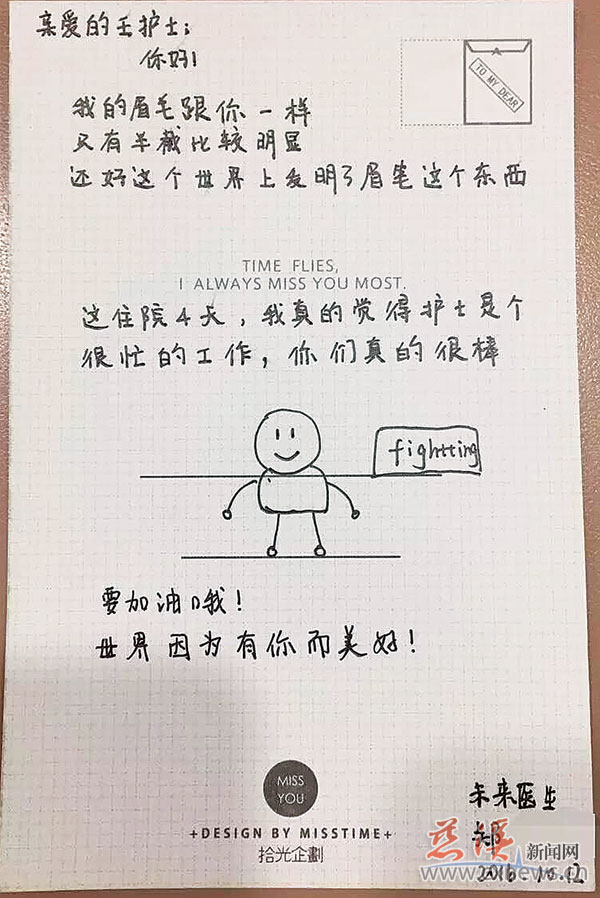 亲爱的王护士:
你好!
TO MY DEAR
我的眉毛跟你一样
只有半截比较明显
还好这个世界上发明了眉笔这个东西
TIME FLIES,
I ALWAYS MISS YOU MOST.
这住院4天,我真的觉得护士是个
很忙的工作,你们真的很棒
fightting
要加油哦!
世界因为有你而美好!
MISS
YOU
+DESIGN BY MISSTIME+
拾光企劃
未来医生
郑
慈溪新闻网
2016.10.12